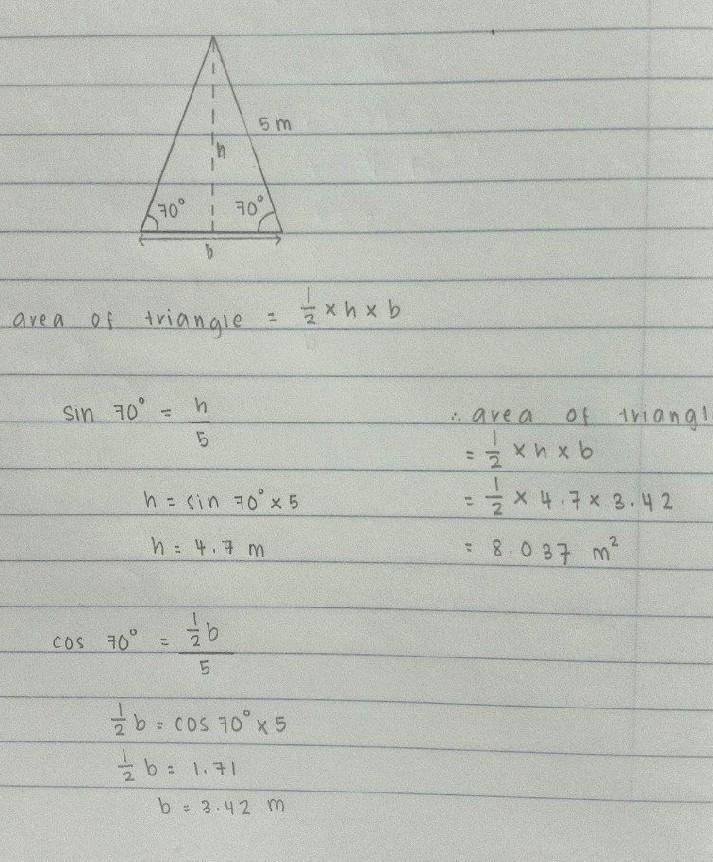 5 m
h
70° 70°
b
area of triangle = 1/2 × h × b
sin 70° = h/5
h = sin 70° × 5
h = 4.7 m
cos 70° = 1/2 b/5
1/2 b = cos 70° × 5
1/2 b = 1.71
b = 3.42 m
∴ area of triangl
= 1/2 × h × b
= 1/2 × 4.7 × 3.42
= 8.037 m²